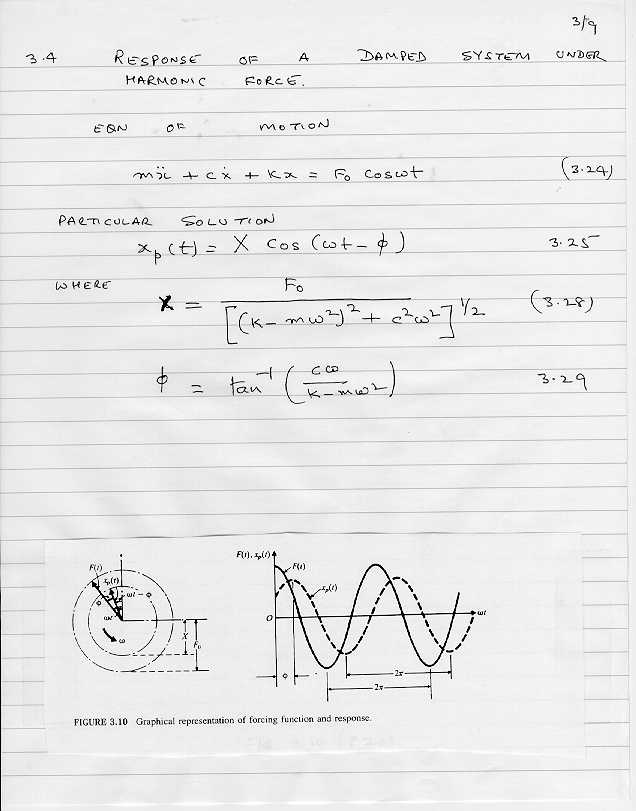 3/9
3.4 RESPONSE OF A DAMPED SYSTEM UNDER
HARMONIC FORCE.
EQN OF MOTION
mẍ + cẋ + Kx = F₀ cosωt (3.24)
PARTICULAR SOLUTION
xₚ(t) = X cos (ωt – ϕ) 3.25
WHERE
X = F₀ / [(K – mω²)² + c²ω²]^1/2 (3.28)
ϕ = tan⁻¹ (cω / K – mω²) 3.29
F(t)
xₚ(t)
ωt – ϕ
ϕ
ωt
ω
X
F₀
F(t), xₚ(t)
F(t)
xₚ(t)
O
ωt
ϕ
2π
2π
FIGURE 3.10 Graphical representation of forcing function and response.